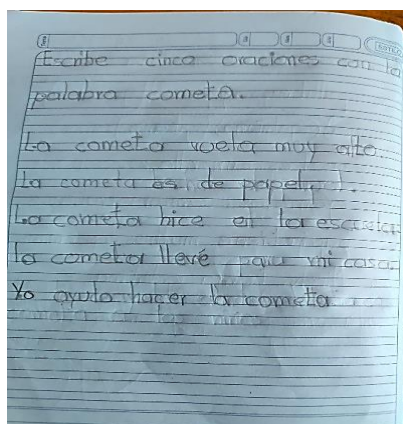 Escribe cinco oraciones con la
palabra cometa.
La cometa vuela muy alto.
La cometa es de papel.
La cometa hice en la escuela
la cometa llevé para mi casa.
Yo ayudo hacer la cometa